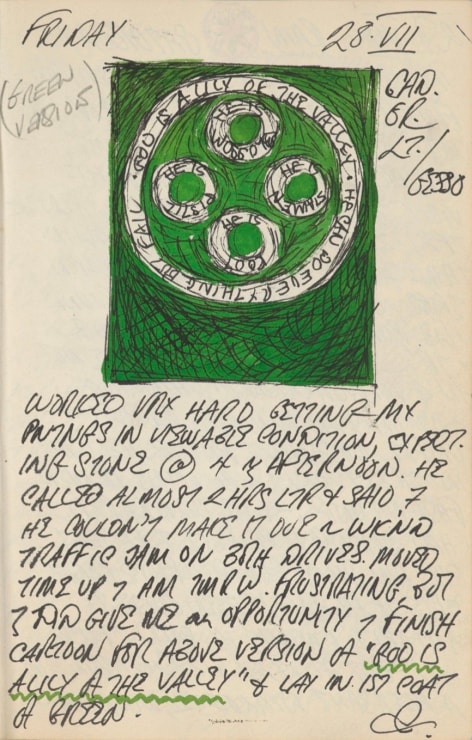 FRIDAY 28·VII
(GREEN
VERSION)
CAD.
GR.
LT./
GESSO
· GOD IS A LILY OF THE VALLEY · HE CAN DO EVERYTHING BUT FAIL
HE IS BLOSSOM
HE IS PISTIL
HE IS STAMEN
HE IS ROOT
WORKED VRY HARD GETTING MY
PNTINGS IN VIEWABLE CONDITION, EXPECT-
ING STONE @ 4 AFTERNOON. HE
CALLED ALMOST 2 HRS LTR & SAID
HE COULDN'T MAKE IT DUE WK'ND
TRAFFIC JAM ON DRIVES. MOVED
TIME UP AM TMRW. FRUSTRATING, BUT
DID GIVE ME an OPPORTUNITY FINISH
CARTOON FOR ABOVE VERSION "GOD IS
A LILY THE VALLEY" & LAY IN 1ST COAT
GREEN.